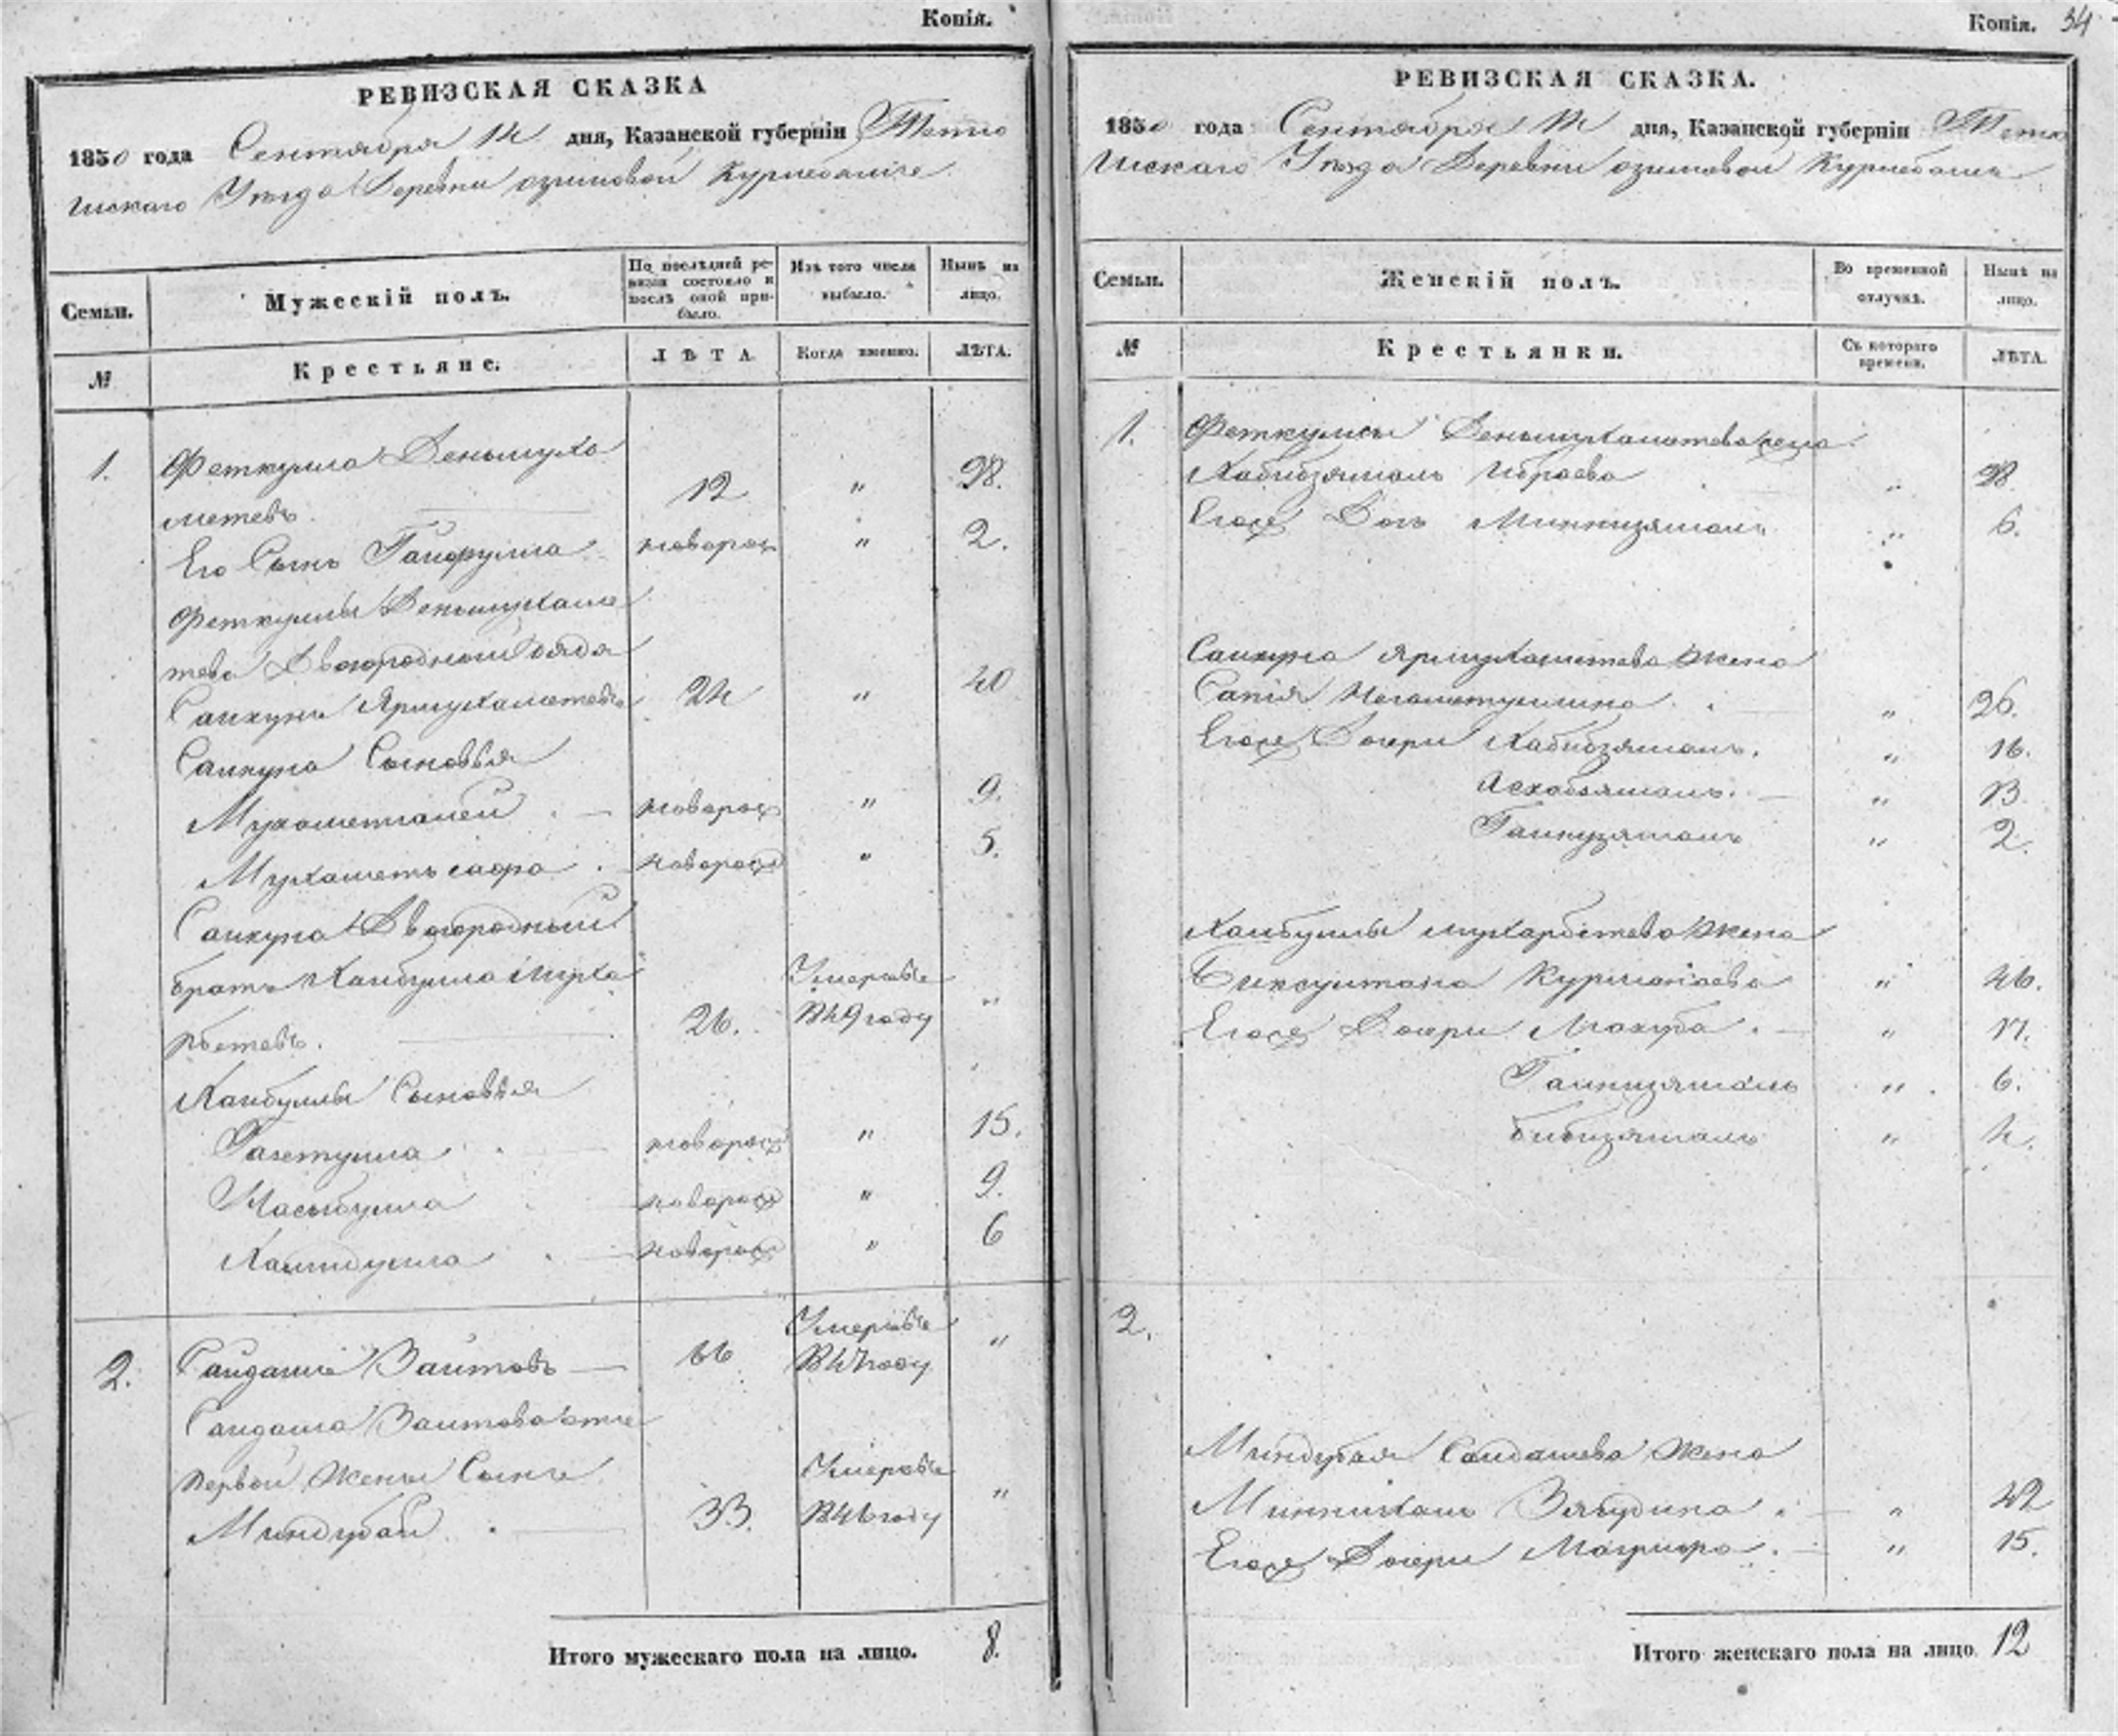 Копія.
РЕВИЗСКАЯ СКАЗКА
1850 года Сентября 14 дня, Казанской губерніи Тетю
шскаго Уѣзда Деревни озимовой Курмебашъ
Семьи.
Мужескій полъ.
По послѣдней ре-
визіи состояло и
послѣ оной при-
было.
Изъ того числа
выбыло.
Нынѣ на
лицо.
№
Крестьяне.
ЛѢТА
Когда именно.
ЛѢТА.
1. Феткулла Деньмуха
метевъ 12 " 28.
Его Сынъ Гайфулла новорож " 2.
Феткуллы Деньмухаме
тева Двоюродной дядя
Саинунъ Ярмухаметевъ 24 " 40
Сынковья
Мухаметгалей новорож " 9.
Мухаметь сафа новорож " 5.
Двоюродный
братъ Хайбулла Муха
рбетевъ. 26. Умеръ въ
В 49 году "
Хайбуллы Сыновья
новорож " 15.
новорож " 9.
новорож " 6
2. Сайдашъ Заитовъ 66 Умеръ въ
В 47 году "
Сайдаша Заитова отъ
первой Жены Сынъ
Миндубай 33. Умеръ въ
В 46 году "
Итого мужескаго пола на лицо. 8.
Копія. 34
РЕВИЗСКАЯ СКАЗКА.
1850 года Сентября 14 дня, Казанской губерніи Тетю
шскаго Уѣзда Деревни озимовой Курмебашъ
Семьи.
Женскій полъ.
Во временной
отлучкѣ.
Нынѣ на
лицо.
№
Крестьянки.
Съ котораго
времени.
ЛѢТА.
1. Феткуллы Деньмухаметева жена
Хабибзямалъ Ибраева " 28
Еюже Дочь Миннизямалъ " 6.
Ярмухаметева Жена
Сапія Негаметуллина " 26.
Еюже Дочери Хабибзямалъ. " 16.
Асхабзямалъ. " 13
" 2.
Хайбуллы Мухарбетева Жена
Курманаева " 46.
Еюже Дочери Махуба " 17.
" 6.
Бибизямалъ " 4.
2.
Миндубая Сайдашева Жена
" 42
Еюже Дочери " 15.
Итого женскаго пола на лицо 12